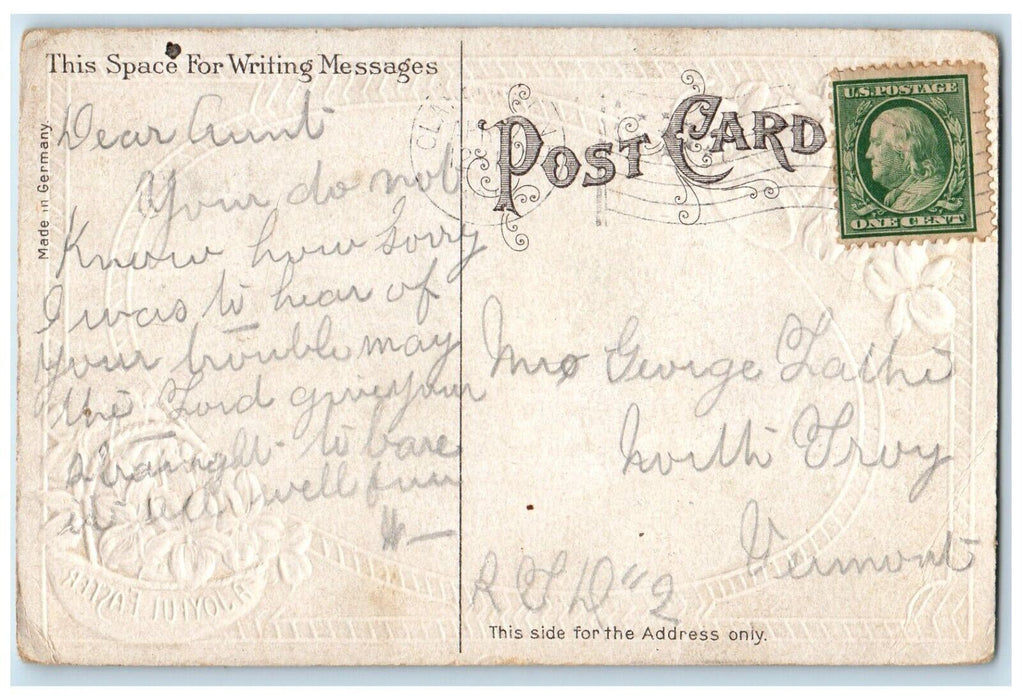 This Space For Writing Messages
Made in Germany.
POST CARD
U.S. POSTAGE
ONE CENT
Dear Aunt
Your do not
Know how sorry
I was to hear of
your trouble may
the Lord give your
to bare
it all well
Mrs George Lathe
North Troy
Vermont
R F D "2
This side for the Address only.
A JOYFUL EASTER